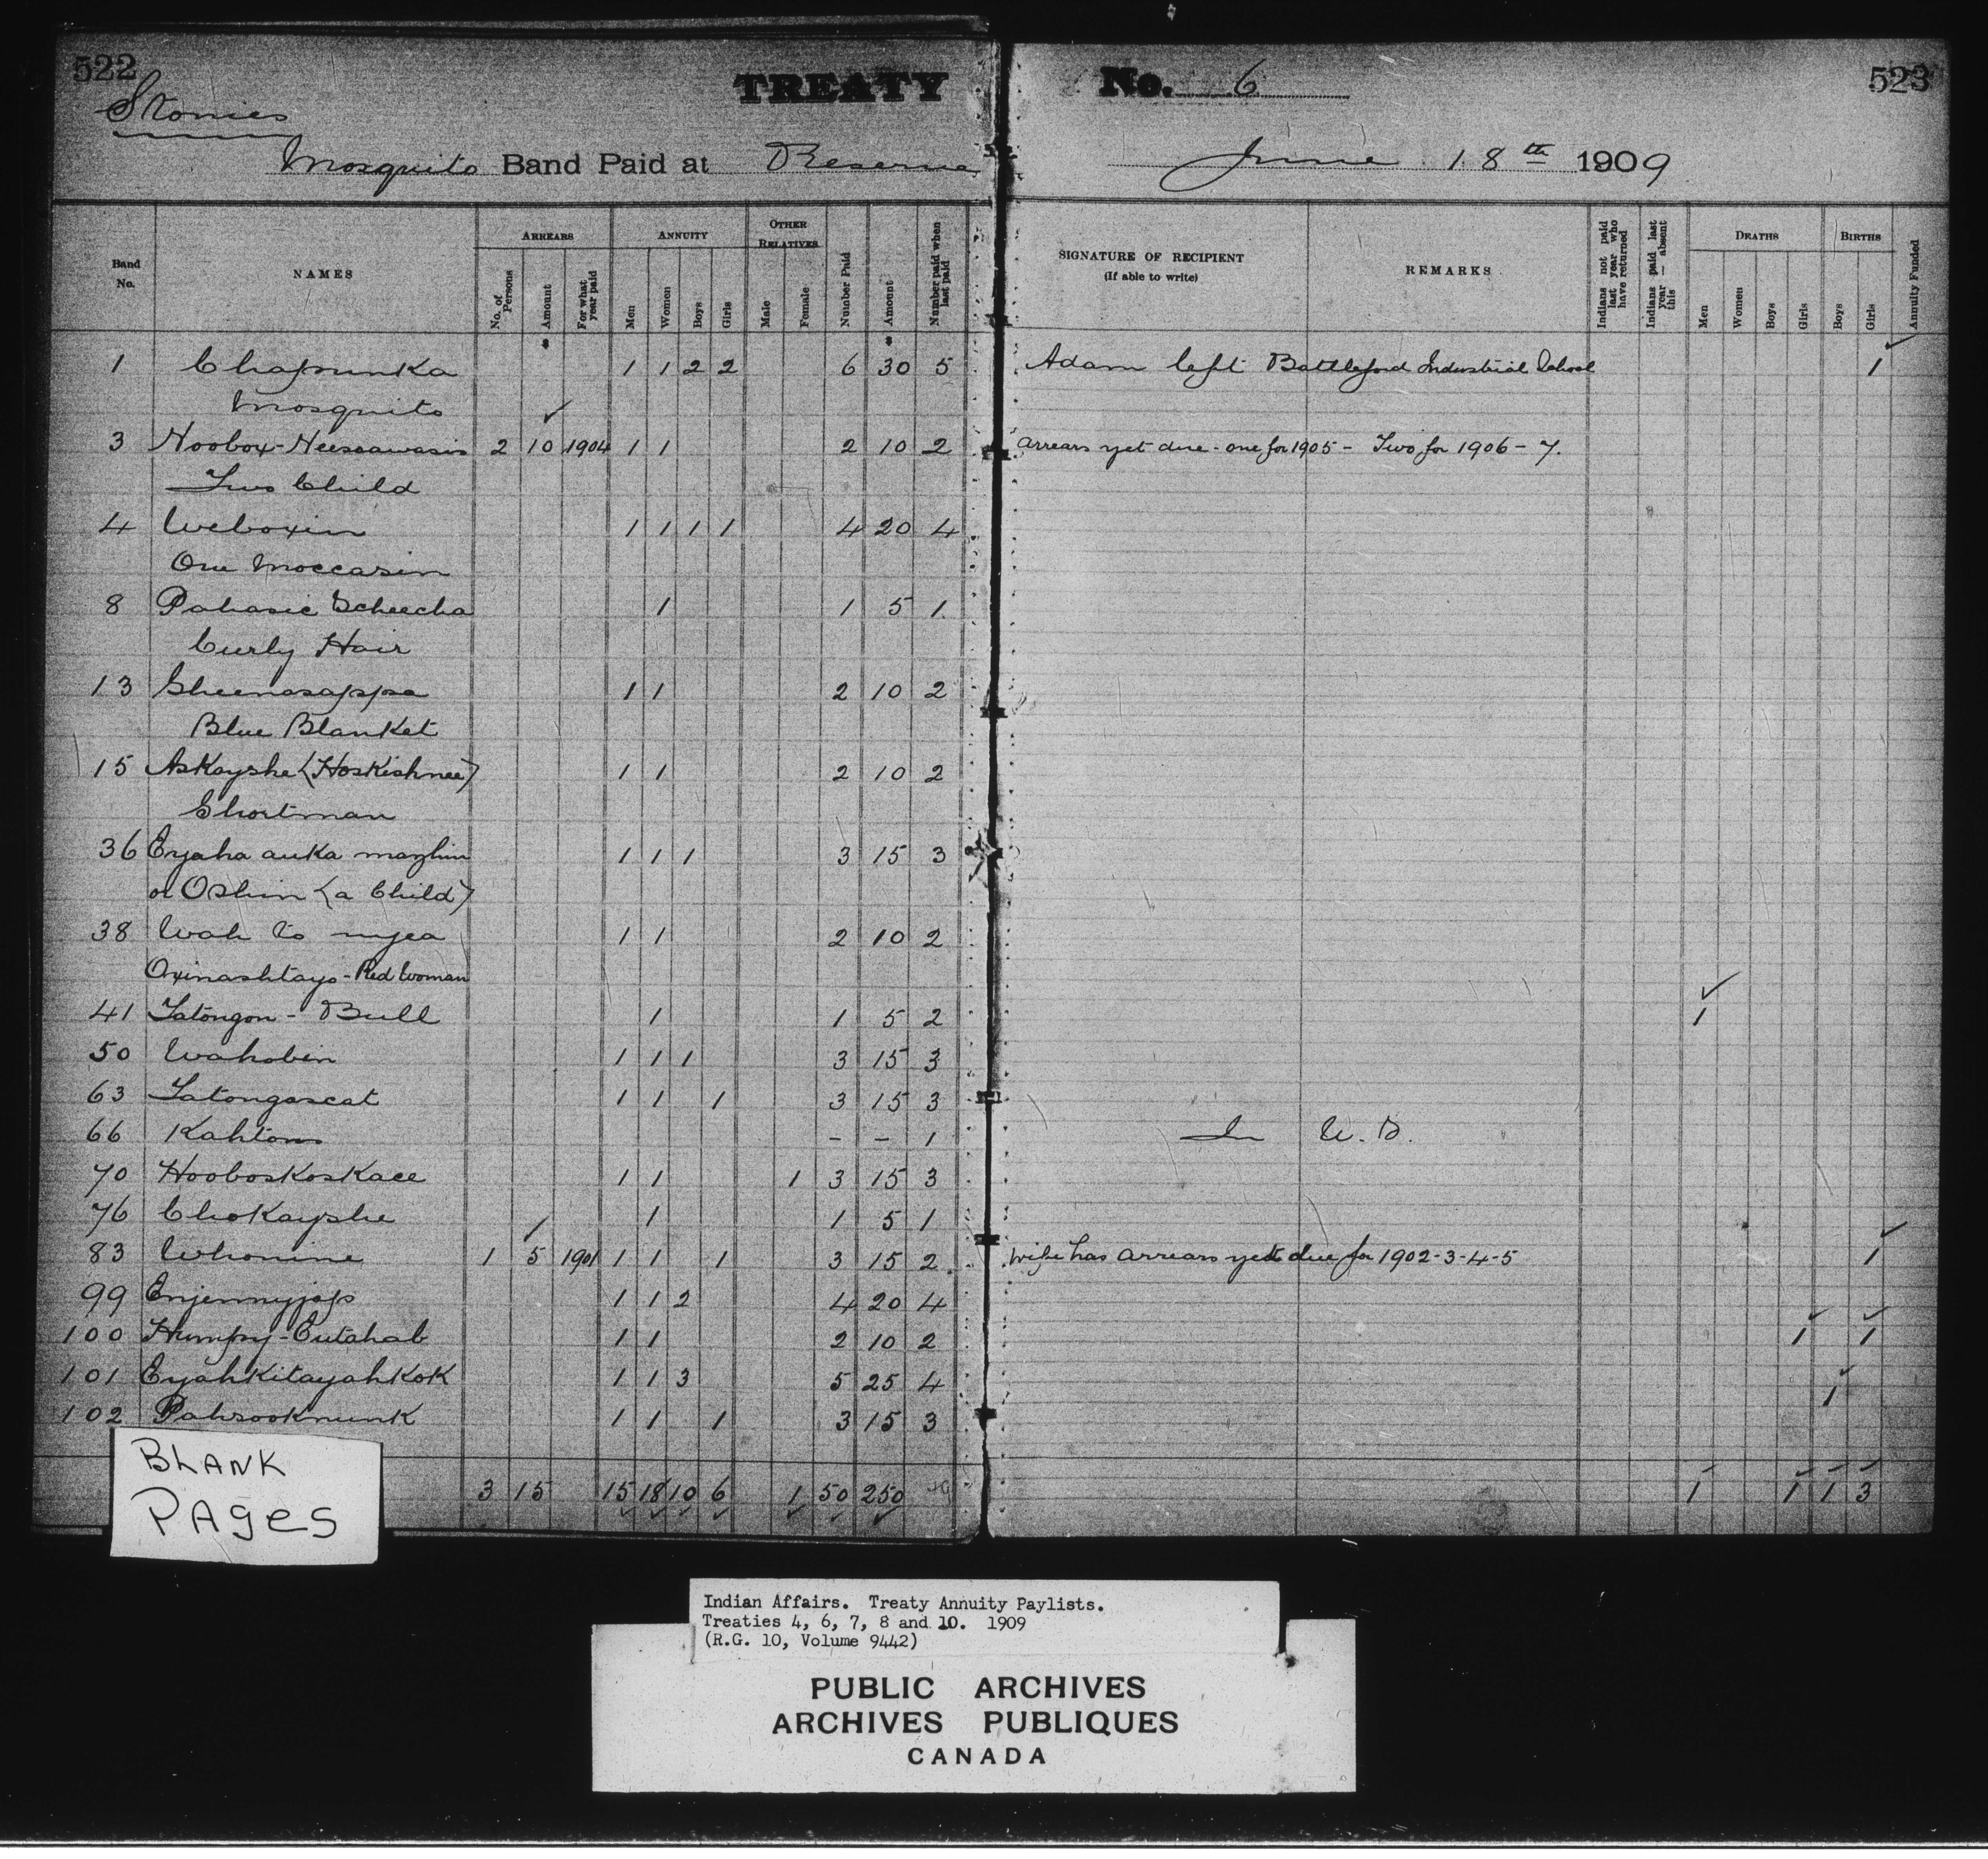 522
TREATY No. 6
523
Stonies
Mosquito Band Paid at Reserve June 18th 1909
Band No.
NAMES
ARREARS
No. of Persons
Amount
For what year paid
ANNUITY
Men
Women
Boys
Girls
OTHER RELATIVES
Male
Female
Number Paid
Amount
Number paid when last paid
SIGNATURE OF RECIPIENT
(If able to write)
REMARKS
Indians not paid last year who have returned
Indians paid last year — absent this
DEATHS
Men
Women
Boys
Girls
BIRTHS
Boys
Girls
Annuity Funded
1 Chapunka 1 1 2 2 6 30 5 Adam left Battleford Industrial School 1
Mosquito
3 Noobox-Neesawasis 2 10 1904 1 1 2 10 2 arrears yet due - one for 1905 - Two for 1906 - 7.
Two Child
4 Weboxin 1 1 1 1 4 20 4
One Moccasin
8 Pahasie Scheecha 1 1 5 1
Curly Hair
13 Sheenasappa 1 1 2 10 2
Blue Blanket
15 Askayshe (Hoskishnee) 1 1 2 10 2
Shortman
36 Eyaha auka mazhin 1 1 1 3 15 3
or Oshin (a Child)
38 Wah to nyea 1 1 2 10 2
Oxinashtayo - Red Woman
41 Tatongon - Bull 1 1 5 2 1
50 Wahobin 1 1 1 3 15 3
63 Tatongascat 1 1 1 3 15 3
66 Kahtoms - - 1 In U.S.
70 Hooboskoskace 1 1 1 3 15 3
76 Chokayshe 1 1 5 1
83 Whonine 1 5 1901 1 1 1 3 15 2 wife has arrears yet due for 1902-3-4-5 1
99 Enjennyjap 1 1 2 4 20 4
100 Humpy-Cutahab 1 1 2 10 2 1 1
101 Eyahkitayahkok 1 1 3 5 25 4 1
102 Pahsooknunk 1 1 1 3 15 3
3 15 15 18 10 6 1 50 250 1 1 1 3
BLANK
PAges
Indian Affairs. Treaty Annuity Paylists.
Treaties 4, 6, 7, 8 and 10. 1909
(R.G. 10, Volume 9442)
PUBLIC ARCHIVES
ARCHIVES PUBLIQUES
CANADA